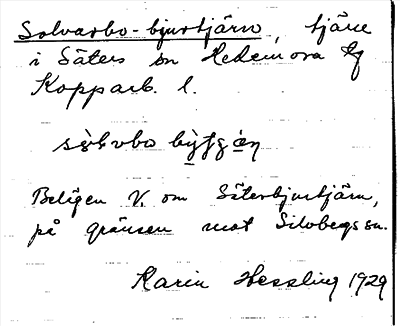 Solvarbo-bjurtjärn, tjärn
i Säters sn Hedemora tg
Kopparb. l.
Belägen V. om Säterbjurtjärn,
på gränsen mot Silvbergs sn.
Karin Hessling 1929